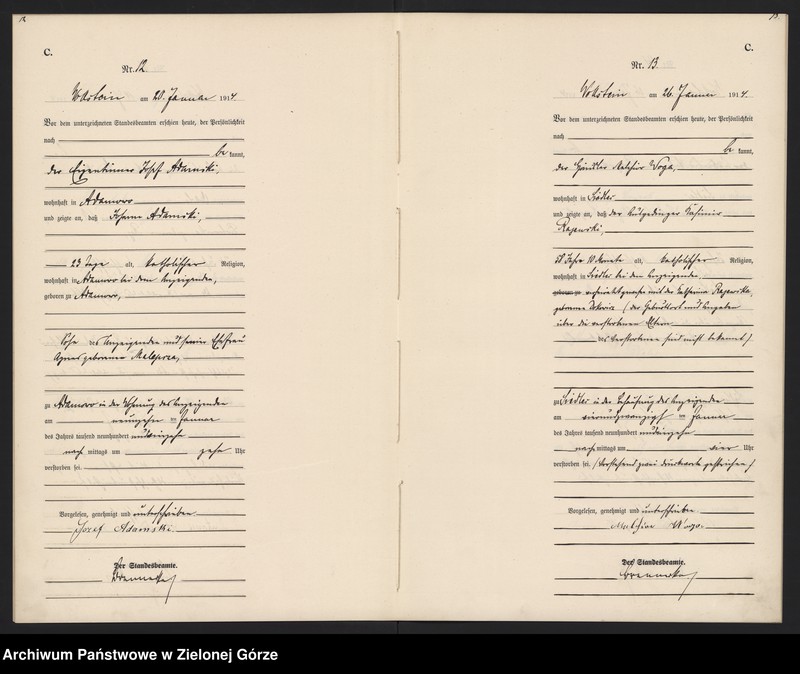 12
C.
Nr. 12
Wollstein am 20. Januar 1914.
Vor dem unterzeichneten Standesbeamten erschien heute, der Persönlichkeit
nach
be kannt,
der Eigentümer Josef Adamski,
wohnhaft in Adamowo
und zeigte an, daß Johann Adamski,
23 Tage alt, katholischer Religion,
wohnhaft in Adamowo bei dem Anzeigenden,
geboren zu Adamowo,
Sohn des Anzeigenden und seiner Ehefrau
Agnes geborene
zu Adamowo in der Wohnung des Anzeigenden
am neunzehn ten Januar
des Jahres tausend neunhundert und vierzehn
nach mittags um zehn Uhr
verstorben sei.
Vorgelesen, genehmigt und unterschrieben
Jozef Adamski
Der Standesbeamte.
13
C.
Nr. 13
Wollstein am 26. Januar 1914.
Vor dem unterzeichneten Standesbeamten erschien heute, der Persönlichkeit
nach
be kannt,
der Händler Melchior Woga,
wohnhaft in Siedler
und zeigte an, daß der Ausgedinger Kasimir
Rajewski,
58 Jahre 10 Monate alt, katholischer Religion,
wohnhaft in Siedler bei dem Anzeigenden,
geboren zu verheiratet gewesen mit der Katharina Rajewska,
geborene (der Geburtsort und Angaben
über die verstorbenen Eltern
des Verstorbenen sind nicht bekannt)
zu Siedler in der Behausung des Anzeigenden
am vierundzwanzigst en Januar
des Jahres tausend neunhundert und vierzehn
nach mittags um vier Uhr
verstorben sei. (Vorstehend zwei Druckworte gestrichen)
Vorgelesen, genehmigt und unterschrieben
Melchior Woga.
Der Standesbeamte.
Archiwum Państwowe w Zielonej Górze